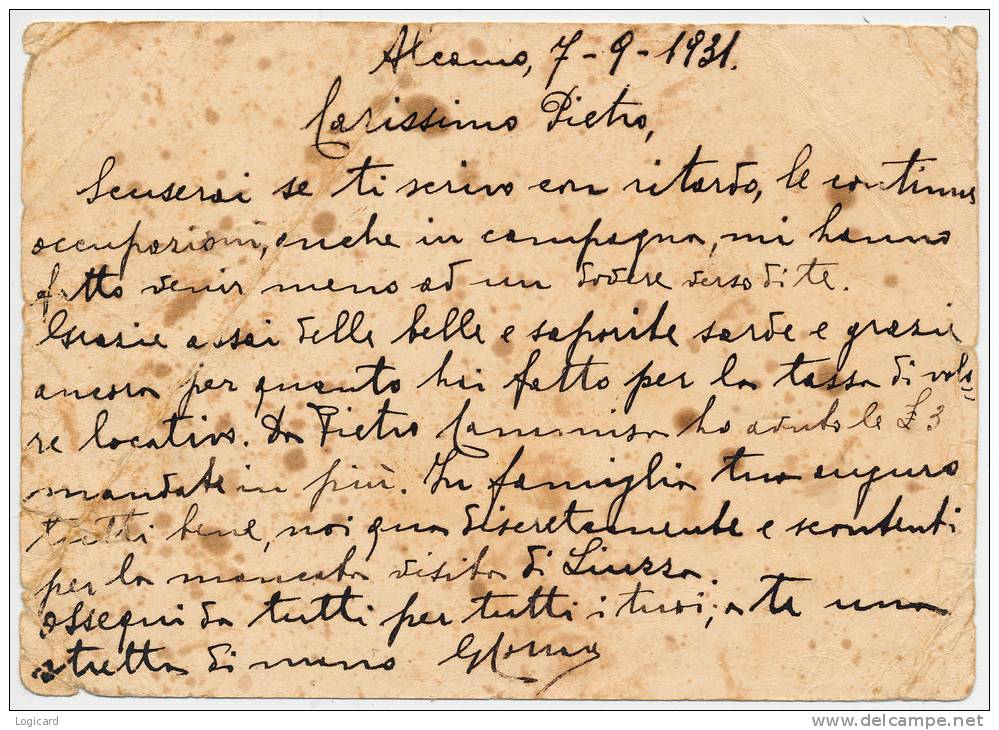 Alcamo, 7-9-1931.
Carissimo Pietro,
Scuserai se ti scrivo con ritardo, le continue
occupazioni, anche in campagna, mi hanno
fatto venir meno ad un dovere verso di te.
Grazie assai delle belle e saporite sarde e grazie
ancora per quanto hai fatto per la tassa di valo=
re locativo. Da Pietro ho avuto le £ 3
mandate in più. In famiglia tua auguro
tutti bene, noi qua discretamente e scontenti
per la mancata visita di Liuzza.
Ossequi da tutti per tutti i tuoi, a te una
stretta di mano
Logicard
www.delcampe.net